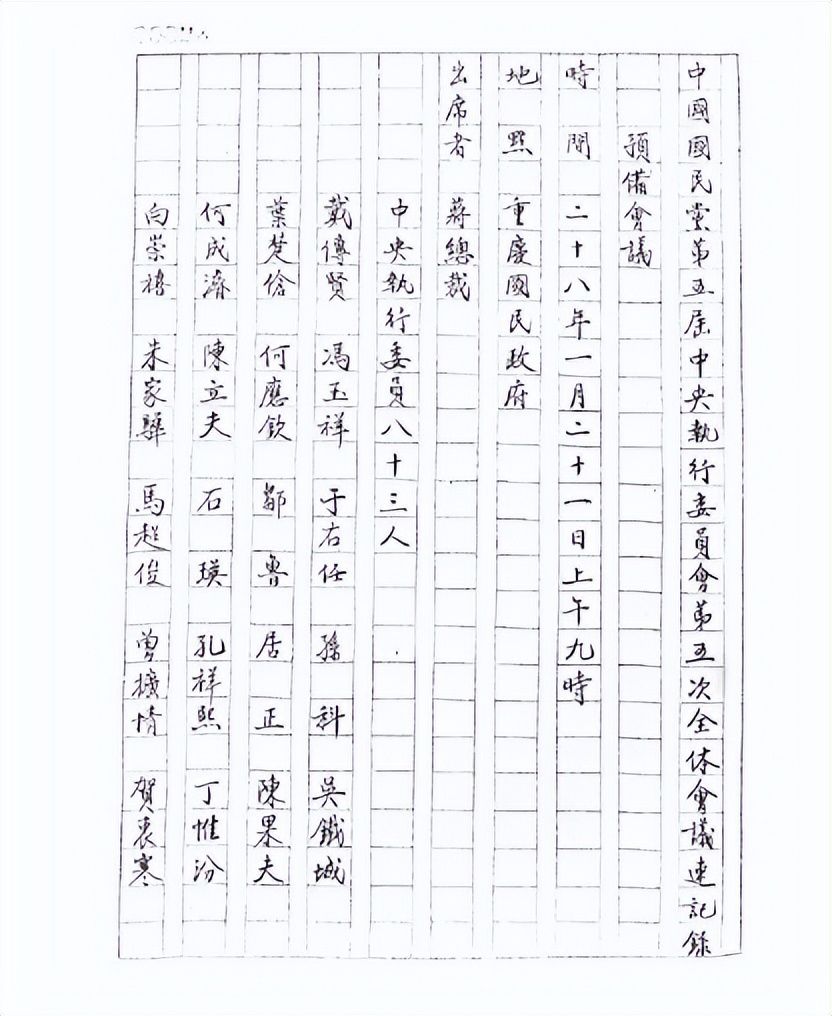 中國國民黨第五屆中央執行委員會第五次全体會議速記錄
預備會議
時間 二十八年一月二十一日上午九時
地點 重慶國民政府
出席者 蔣總裁
中央執行委員八十三人
戴傳賢 馮玉祥 于右任 孫科 吳鐵城
葉楚傖 何應欽 鄒魯 居正 陳果夫
何成濬 陳立夫 石瑛 孔祥熙 丁惟汾
白崇禧 朱家驊 馬超俊 曾擴情 賀衷寒